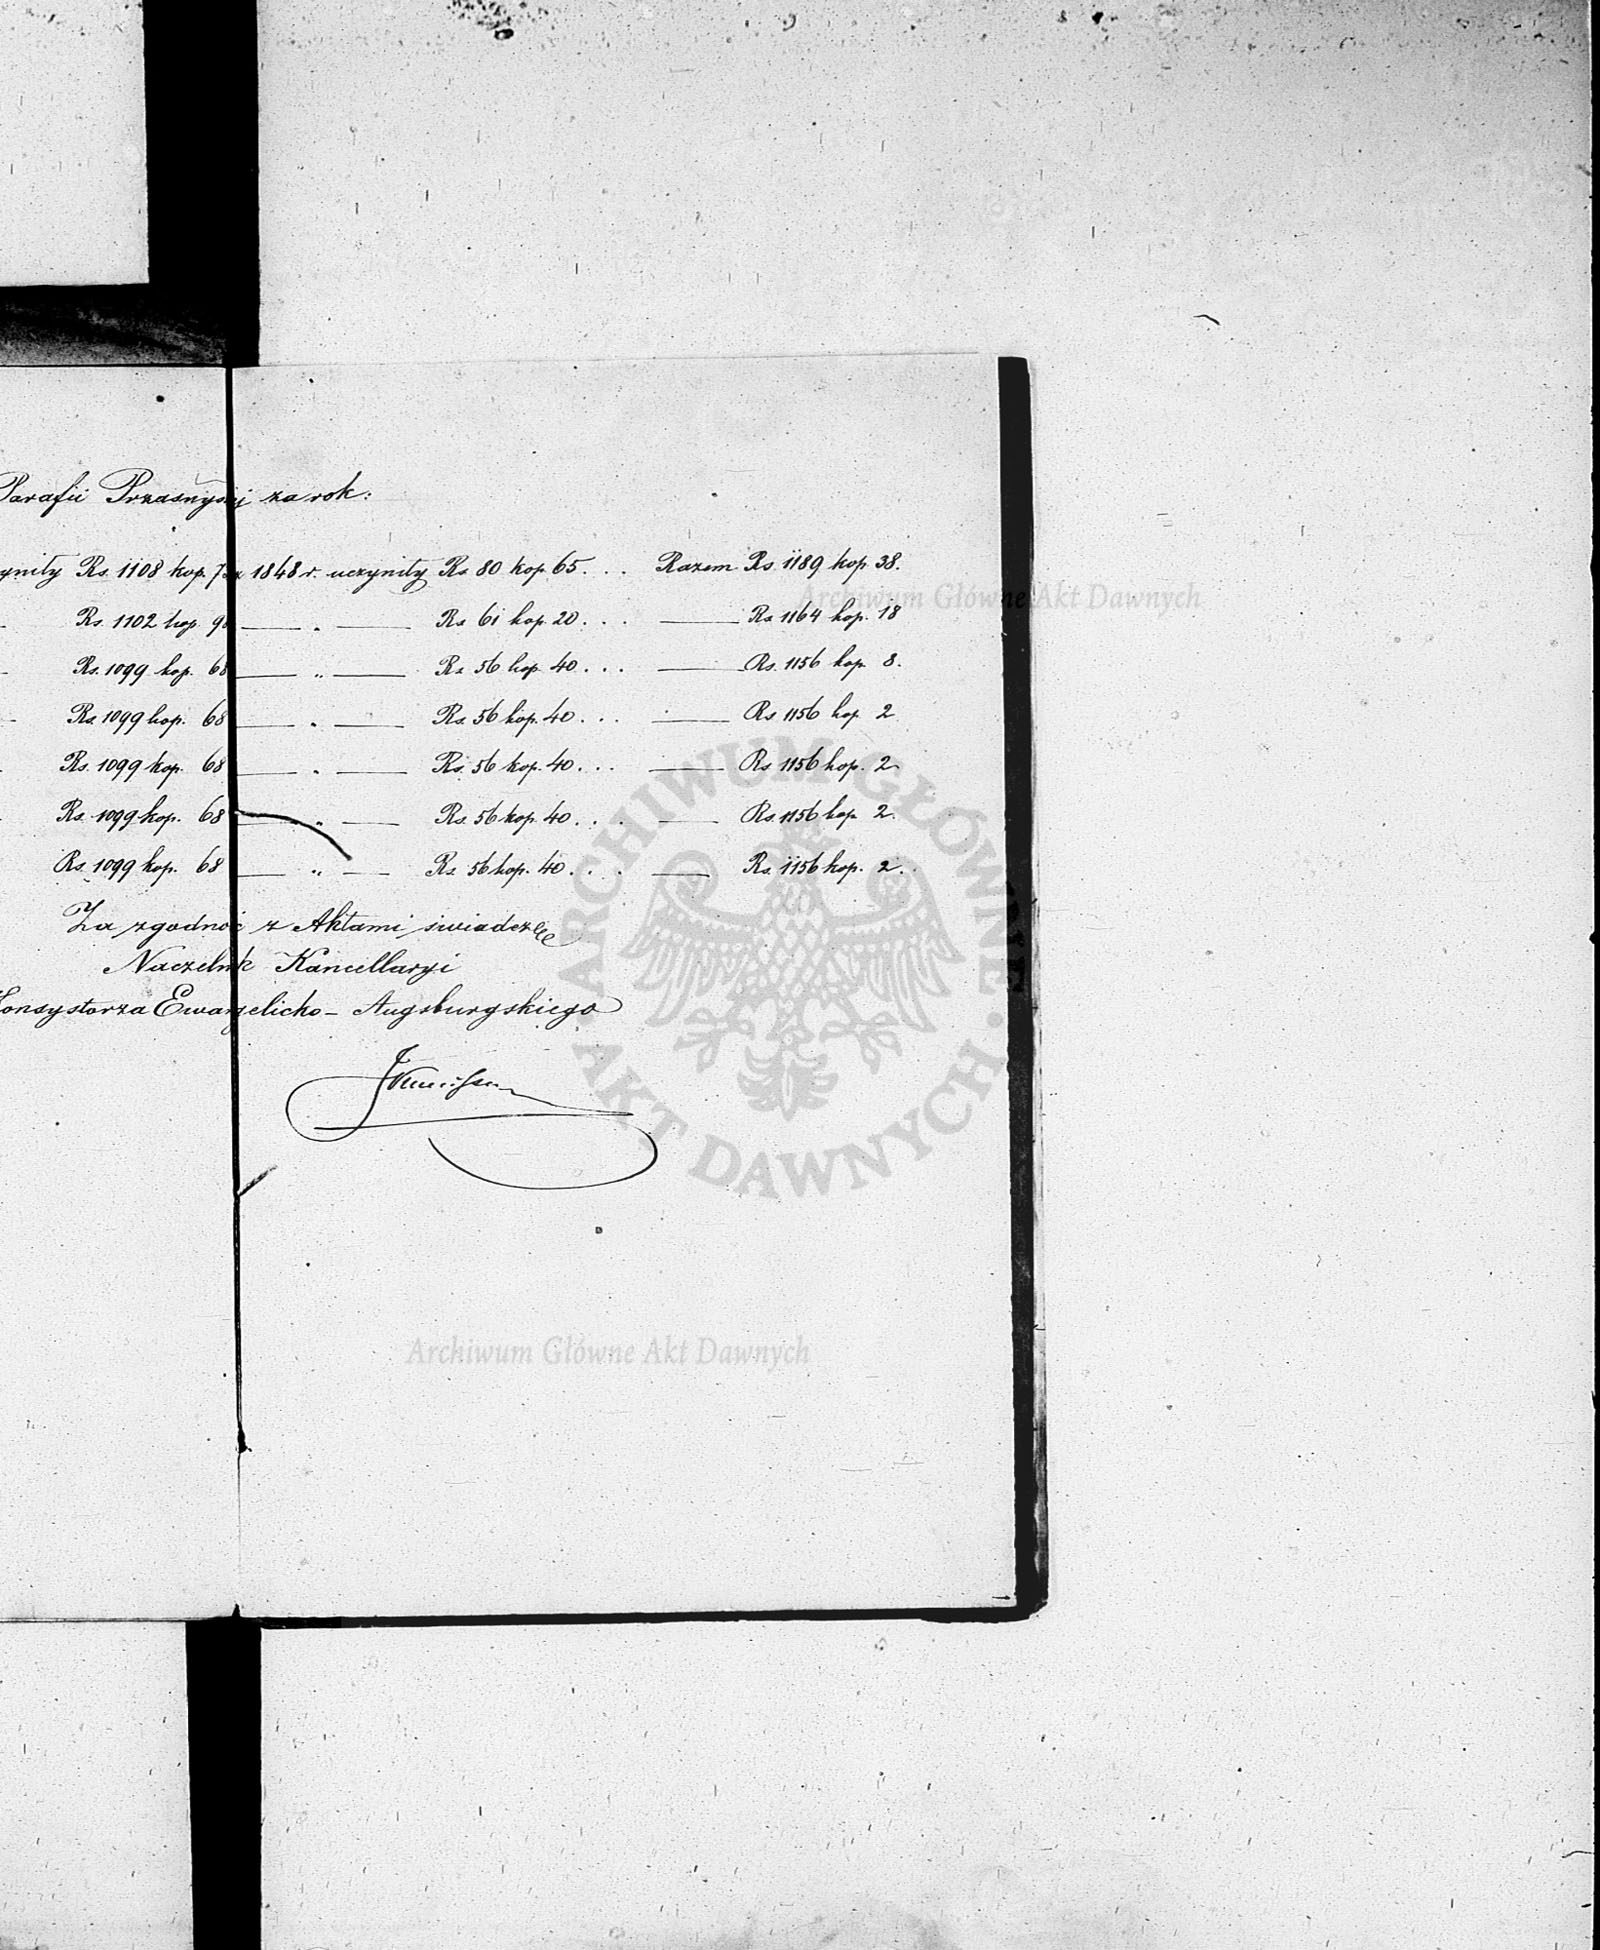 Parafii Przasnyskij za rok:
yniły Rs. 1108 kop. 73 z 1848 r. uczyniły Rs 80 kop. 65. . . Razem Rs. 1189 kop 38.
Rs. 1102 kop. 98 — „ — Rs 61 kop. 20. . . — Rs 1164 kop. 18
Rs. 1099 kop. 68 — „ — Rs 56 kop. 40. . . — Rs. 1156 kop 8.
Rs. 1099 kop. 68 — „ — Rs. 56 kop. 40. . . — Rs 1156 kop 2
Rs. 1099 kop. 68 — „ — Rs. 56 kop. 40. . . — Rs 1156 kop. 2
Rs. 1099 kop. 68 — „ — Rs. 56 kop. 40. . . — Rs. 1156 kop 2.
Rs. 1099 kop. 68 — „ — Rs 56 kop. 40. . . . — Rs. 1156 kop. 2.
Za zgodność z Aktami świadczę
Naczelnik Kancellaryi
Konsystorza Ewangelicko-Augsburgskiego
Archiwum Główne Akt Dawnych
ARCHIWUM GŁÓWNE · AKT DAWNYCH ·
Archiwum Główne Akt Dawnych